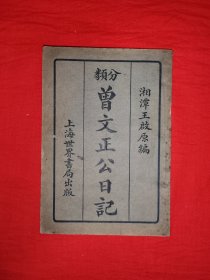 湘潭王啟原編
分類
曾文正公日記
上海世界書局出版